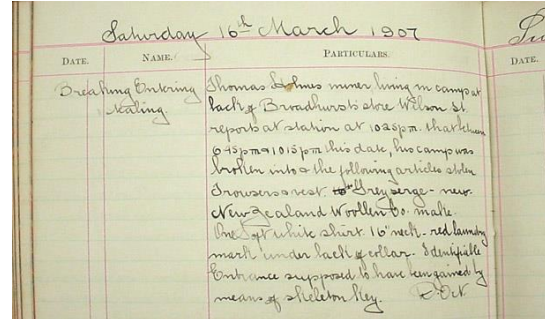 Saturday 16th March 1907
DATE. NAME. PARTICULARS.
Breaking Entering
Stealing
Thomas Holmes miner, living in camp at
back of Broadhurst's store Wilson St.
reports at station at 1025pm. that between
645pm & 1015pm this date, his camp was
broken into & the following articles stolen
Trousers & vest. Grey serge - new.
New Zealand Woollen Co. make.
One Soft white shirt. 16" neck - red laundry
mark under back of collar. Identifiable
Entrance supposed to have been gained by
means of skeleton key.
DATE.